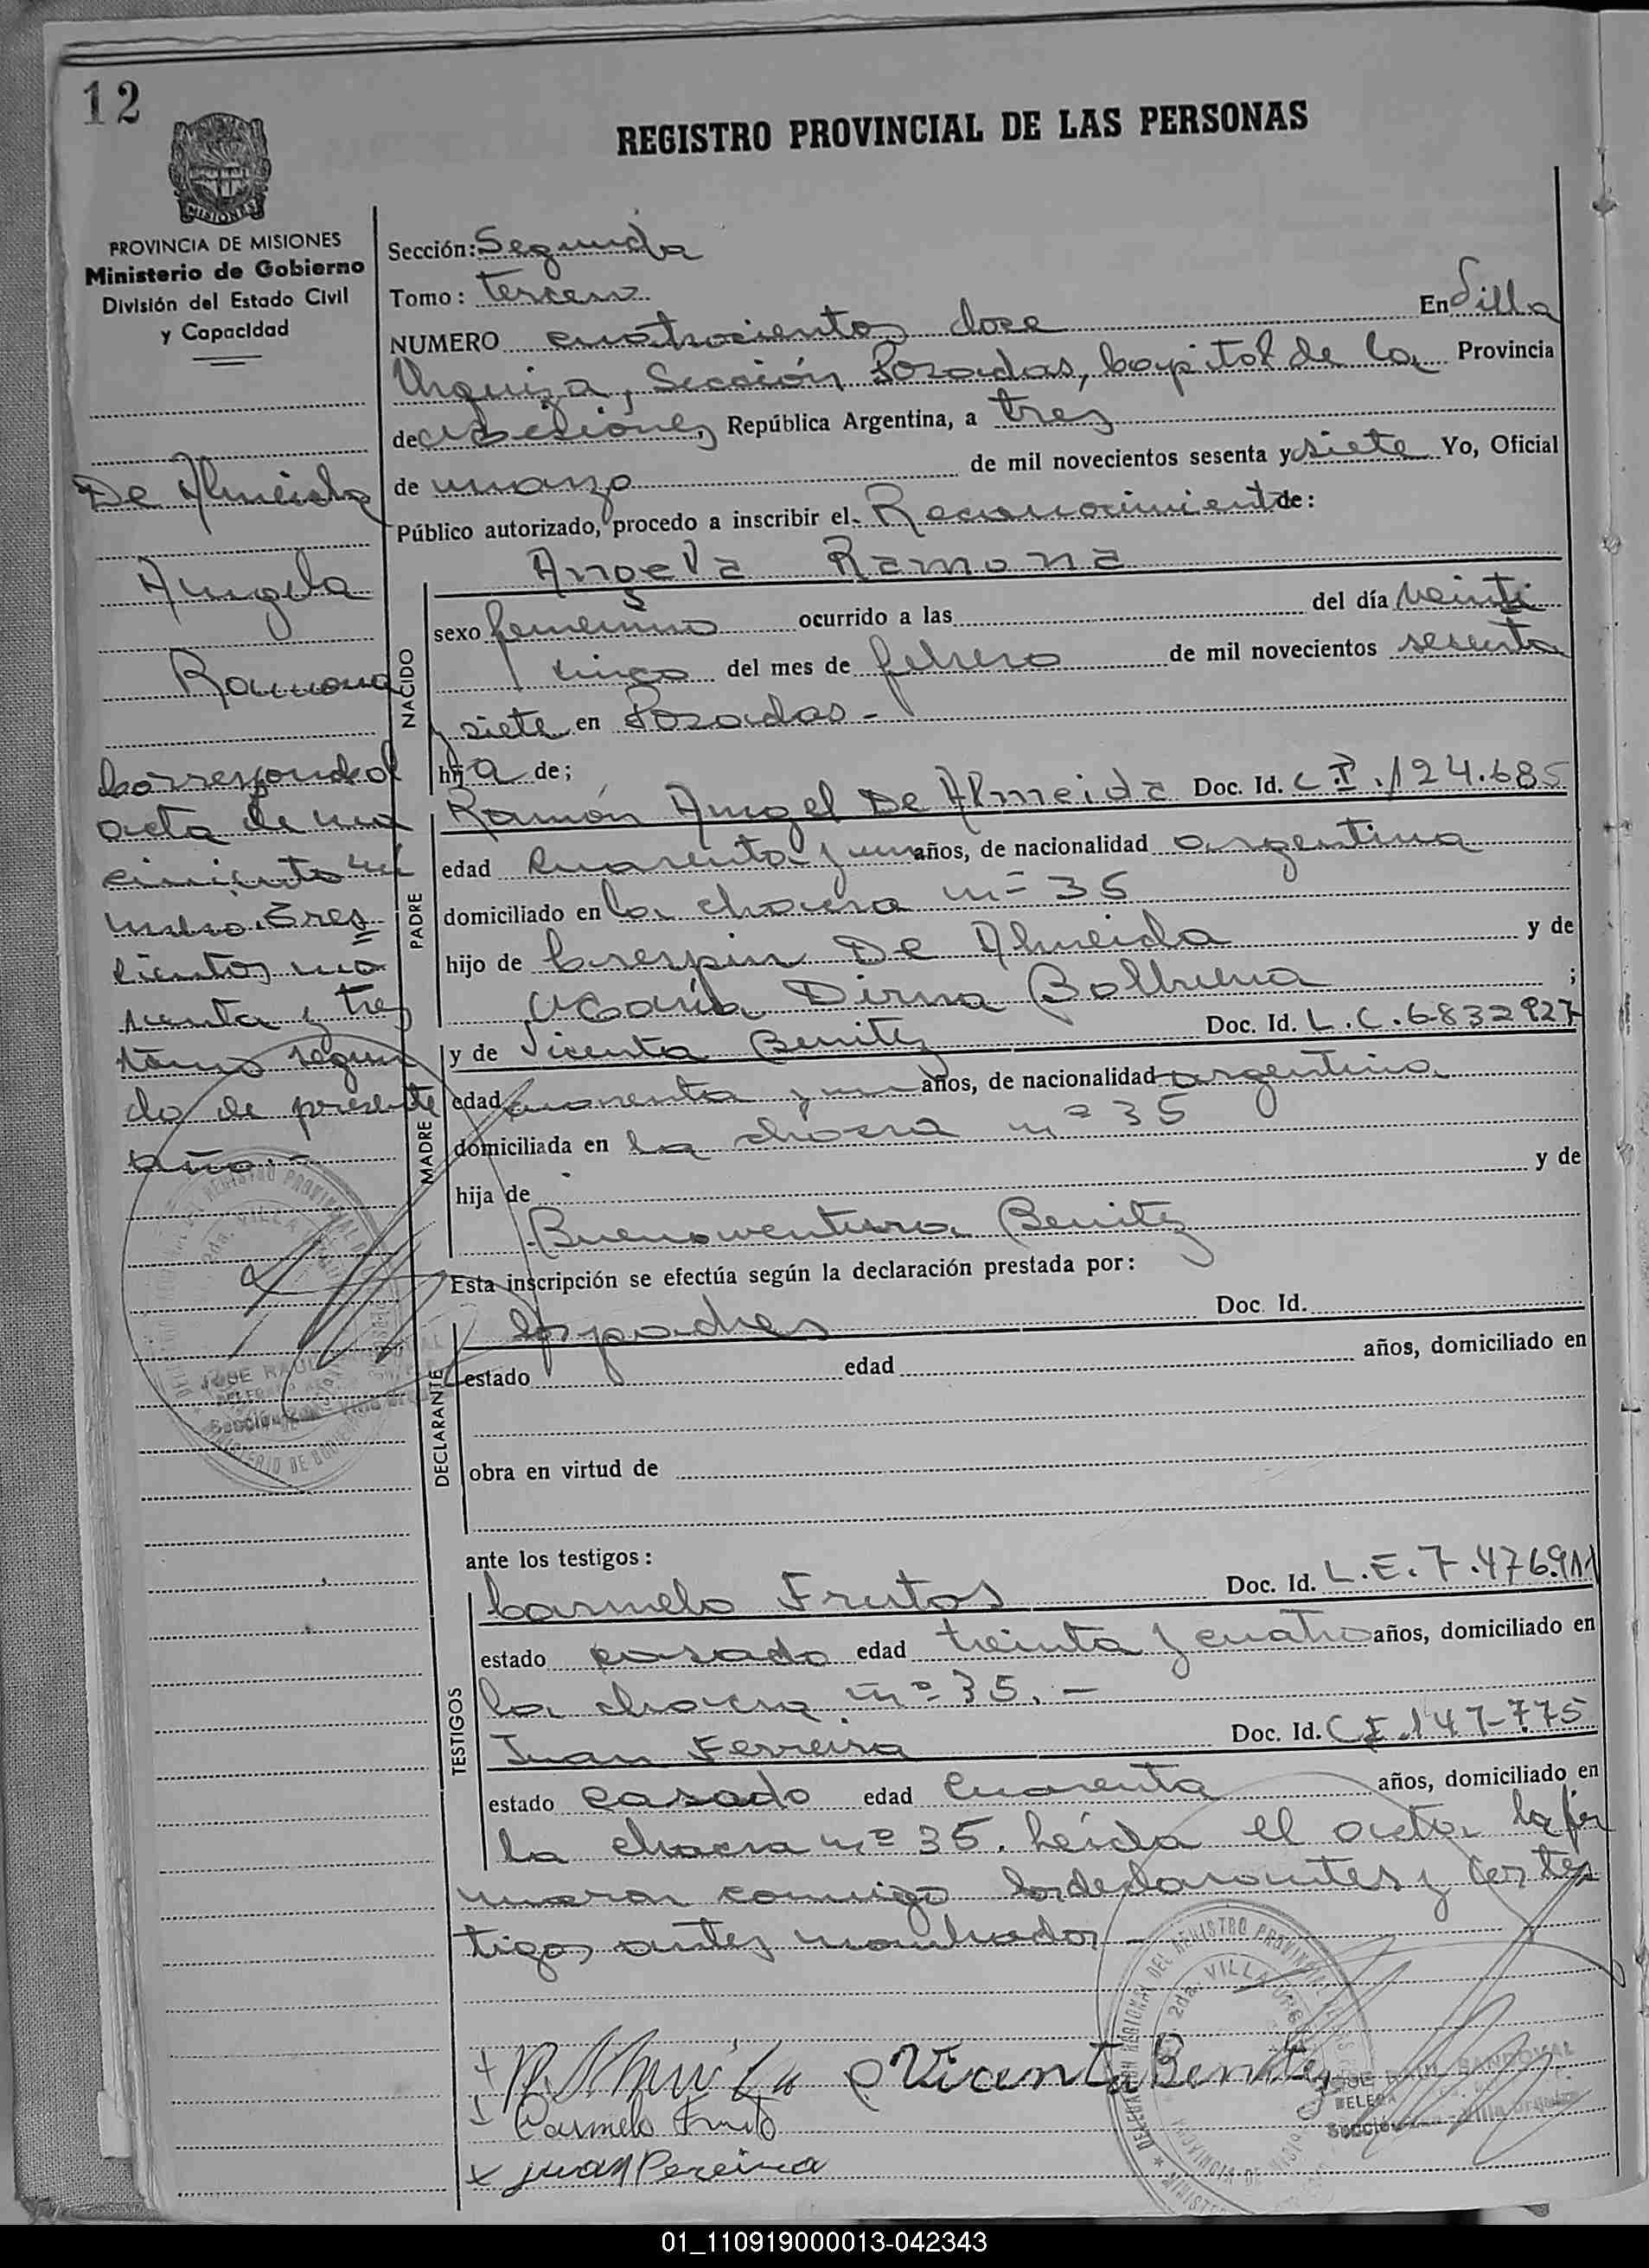 12
REGISTRO PROVINCIAL DE LAS PERSONAS
MISIONES
PROVINCIA DE MISIONES
Ministerio de Gobierno
División del Estado Civil
y Capacidad
De Almeida
Angela
Ramona
Corresponde al
acta de na
cimiento nú
mero tres
cientos no
venta y tres
tomo segun
do de presente
año.-
Sección: Segunda
Tomo: tercero
NUMERO cuatrocientos doce En Villa
Urquiza, Sección Posadas, Capital de la Provincia
de Misiones, República Argentina, a tres
de marzo de mil novecientos sesenta y siete Yo, Oficial
Público autorizado, procedo a inscribir el Reconocimiento de:
NACIDO
Angela Ramona
sexo femenino ocurrido a las del día veinti
cinco del mes de febrero de mil novecientos sesenta
y siete en Posadas -
hija de;
PADRE
Ramón Angel De Almeida Doc. Id. C.I. 124.685
edad cuarenta y un años, de nacionalidad argentina
domiciliado en la chacra nº 35
hijo de Crespin De Almeida y de
María Dirma ;
MADRE
y de Vicenta Benitez Doc. Id. L.C. 6832927
edad cuarenta y un años, de nacionalidad argentina
domiciliada en la chacra nº 35
hija de y de
Buenaventura Benitez
Esta inscripción se efectúa según la declaración prestada por:
DECLARANTE
los padres Doc. Id.
estado edad años, domiciliado en
obra en virtud de
ante los testigos:
TESTIGOS
Carmelo Frutos Doc. Id. L.E. 7.476.911
estado casado edad treinta y cuatro años, domiciliado en
la chacra nº 35. -
Juan Ferreira Doc. Id. C.I. 147-775
estado casado edad cuarenta años, domiciliado en
la chacra nº 35. Leída el acta la fir
maron conmigo los declarantes y los tes
tigos antes nombrados -
Vicenta Benitez
Carmelo Fruto
Juan Pereira
JOSE RAUL SANDOVAL
01_110919000013-042343